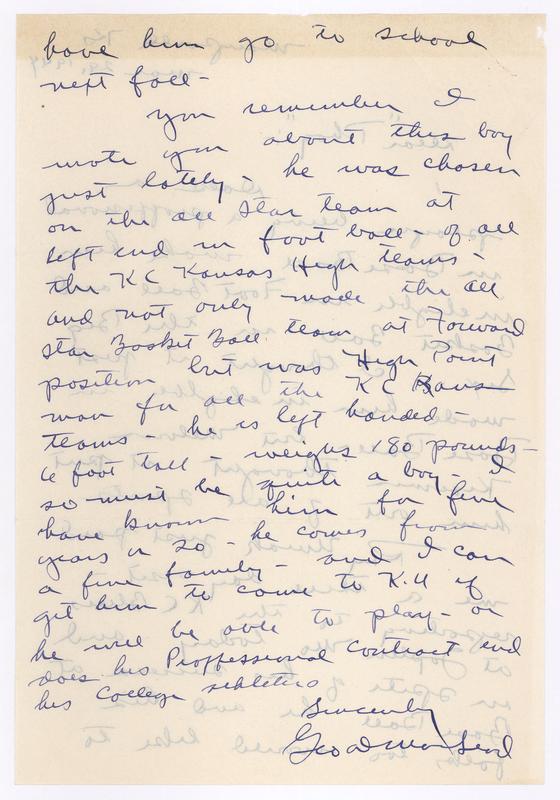 have him go to school
next fall-
You remember I
wrote you about this boy
just lately - he was chosen
on the all Star team at
left end in foot ball - of all
the KC Kansas High teams -
and not only made the all
Star Basket Ball team at Forward
position but was High Point
man for all the KC Kans
teams - he is left handed -
6 foot tall - weighs 180 pounds -
so must be quite a boy - I
have known him for five
years or so - he comes from
a fine family - and I can
get him to come to K.U if
he will be able to play - or
does his Proffessional Contract end
his College athletics
Sincerely